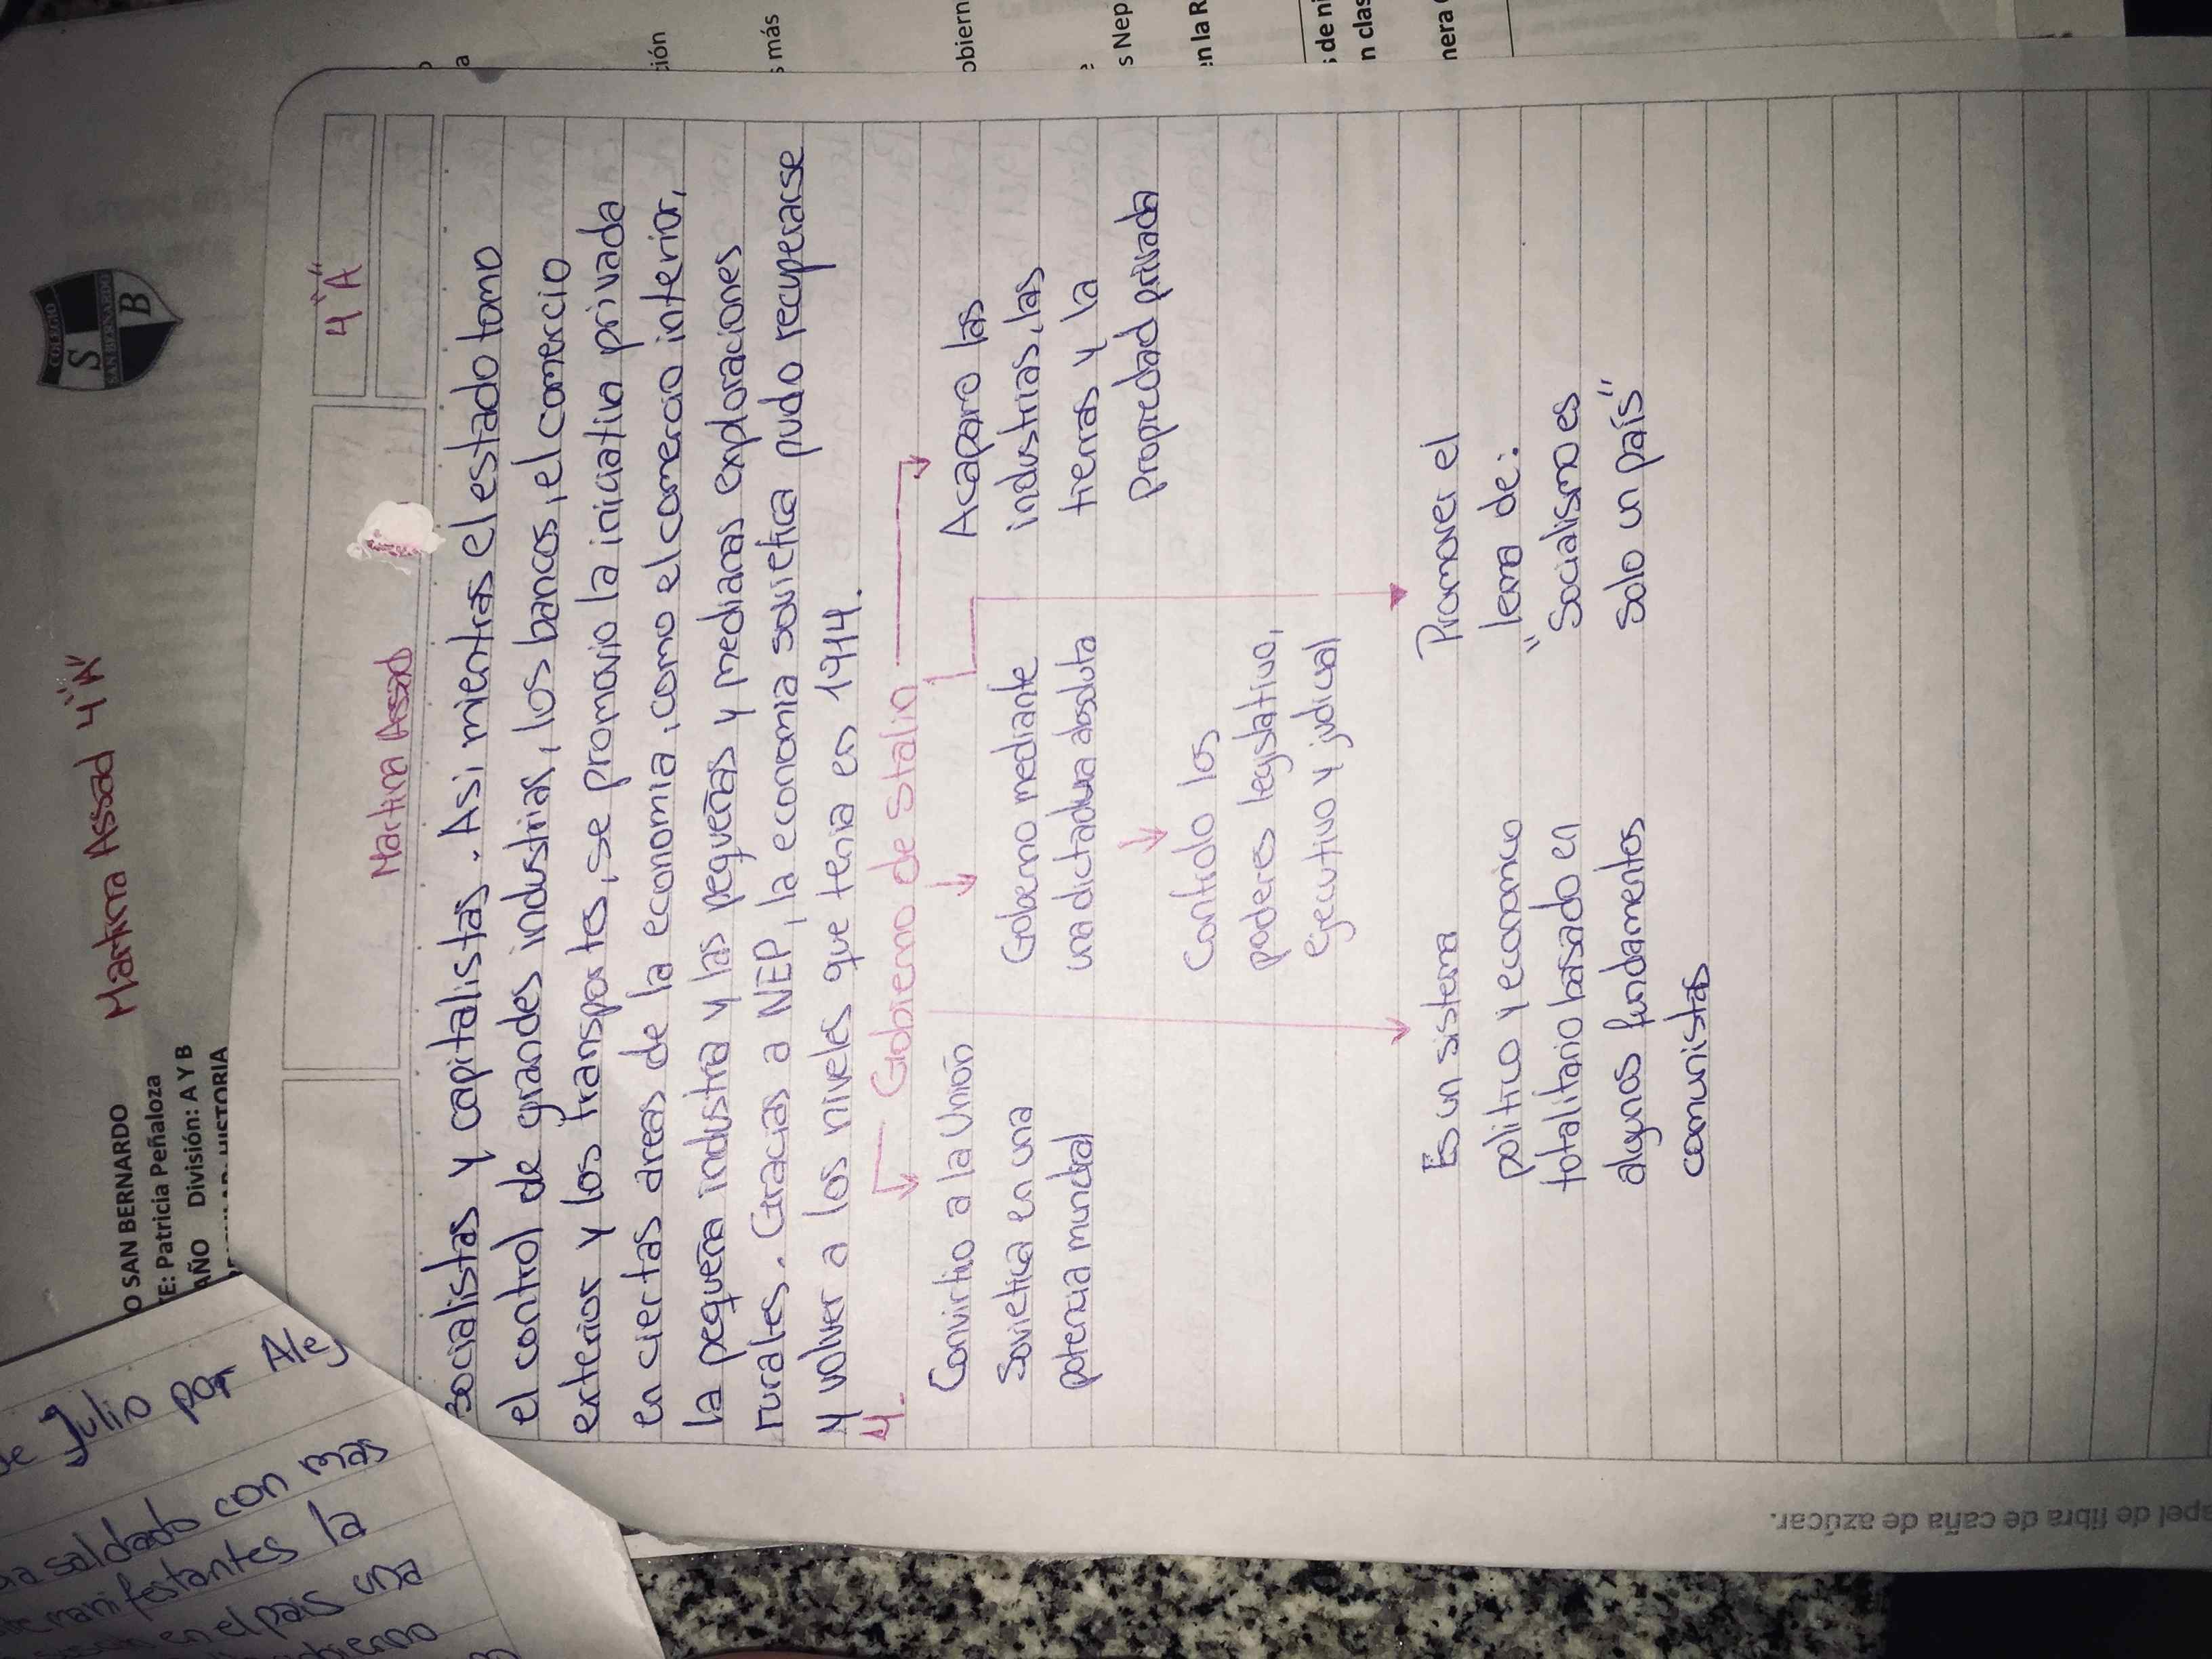 COLEGIO
SAN BERNARDO
S
B
O SAN BERNARDO
Martina Assad 4"A"
E: Patricia Peñaloza
AÑO División: A Y B
HISTORIA
de Julio por Ale
soldado con mas
manifestantes la
en el pais una
Martina Assad
4"A"
socialistas y capitalistas. Asi mientras el estado tomo
el control de grandes industrias, los bancos, el comercio
exterior y los transportes, se promovio la iniciativa privada
en ciertas areas de la economia, como el comercio interior,
la pequeña industria y las pequeñas y medianas exploraciones
rurales. Gracias a NEP, la economia sovietica pudo recuperarse
y volver a los niveles que tenia en 1914.
4.
Gobierno de Stalin
Convirtio a la Unión
Sovietica en una
potencia mundial
Goberno mediante
una dictadura absoluta
Controlo los
poderes legislativo,
ejecutivo y judical
Acaparo las
industrias, las
tierras y la
propiedad privada
Es un sistema
politico y economico
totalitario basado en
algunos fundamentos
comunistas
Promover el
lema de:
"Socialismo es
solo un país"
ión
s más
obiern
s Nep
en la R
s de ni
n clas
nera
apel de fibra de caña de azúcar.